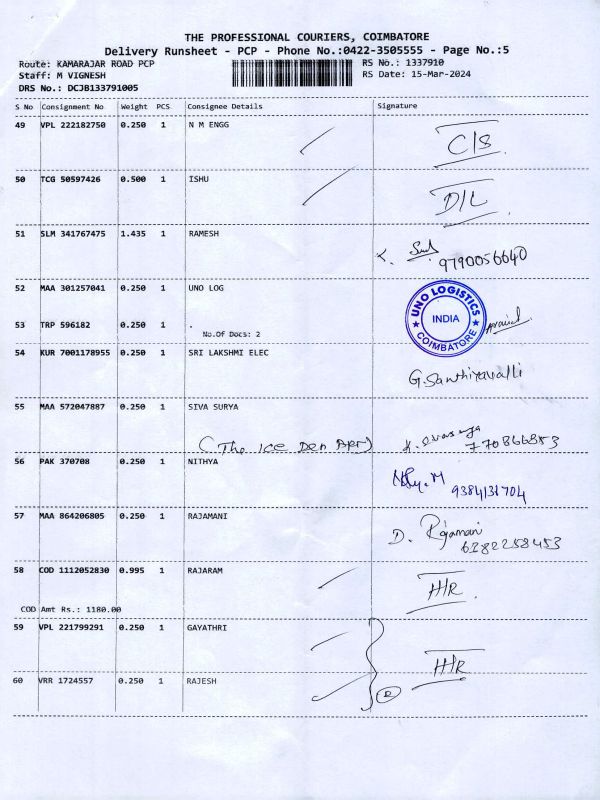 THE PROFESSIONAL COURIERS, COIMBATORE
Delivery Runsheet - PCP - Phone No.:0422-3505555 - Page No.:5
Route: KAMARAJAR ROAD PCP
RS No.: 1337910
Staff: M VIGNESH
RS Date: 15-Mar-2024
DRS No.: DCJB133791005
S No Consignment No Weight PCS Consignee Details Signature
49 VPL 222182750 0.250 1 N M ENGG
C/S
50 TCG 50597426 0.500 1 ISHU
D/L
51 SLM 341767475 1.435 1 RAMESH
9790056640
52 MAA 301257041 0.250 1 UNO LOG
UNO LOGISTICS
INDIA
COIMBATORE
53 TRP 596182 0.250 1 .
No.Of Docs: 2
54 KUR 7001178955 0.250 1 SRI LAKSHMI ELEC
G. Santhiyavalli
55 MAA 572047887 0.250 1 SIVA SURYA
(The Ice Den Apr)
56 PAK 370708 0.250 1 NITHYA
9384131704
57 MAA 864206805 0.250 1 RAJAMANI
D. Rajamani
6382258453
58 COD 1112052830 0.995 1 RAJARAM
H/R
COD Amt Rs.: 1180.00
59 VPL 221799291 0.250 1 GAYATHRI
H/R
60 VRR 1724557 0.250 1 RAJESH